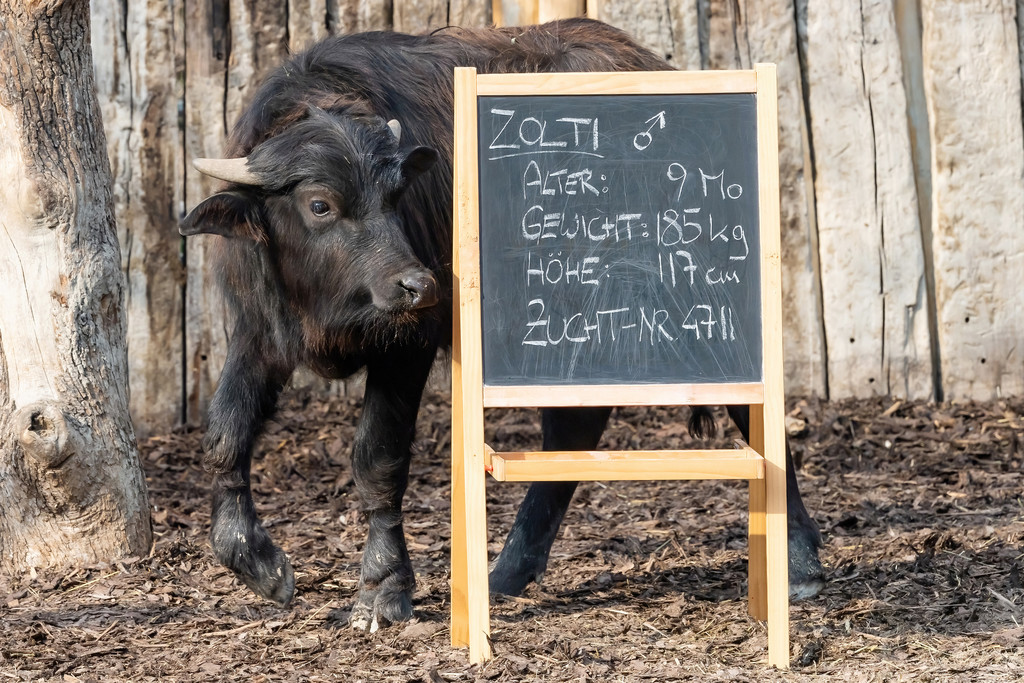 ZOLTI ♂
ALTER: 9 Mo
GEWICHT: 185 kg
HÖHE: 117 cm
ZUCHT-NR 4711